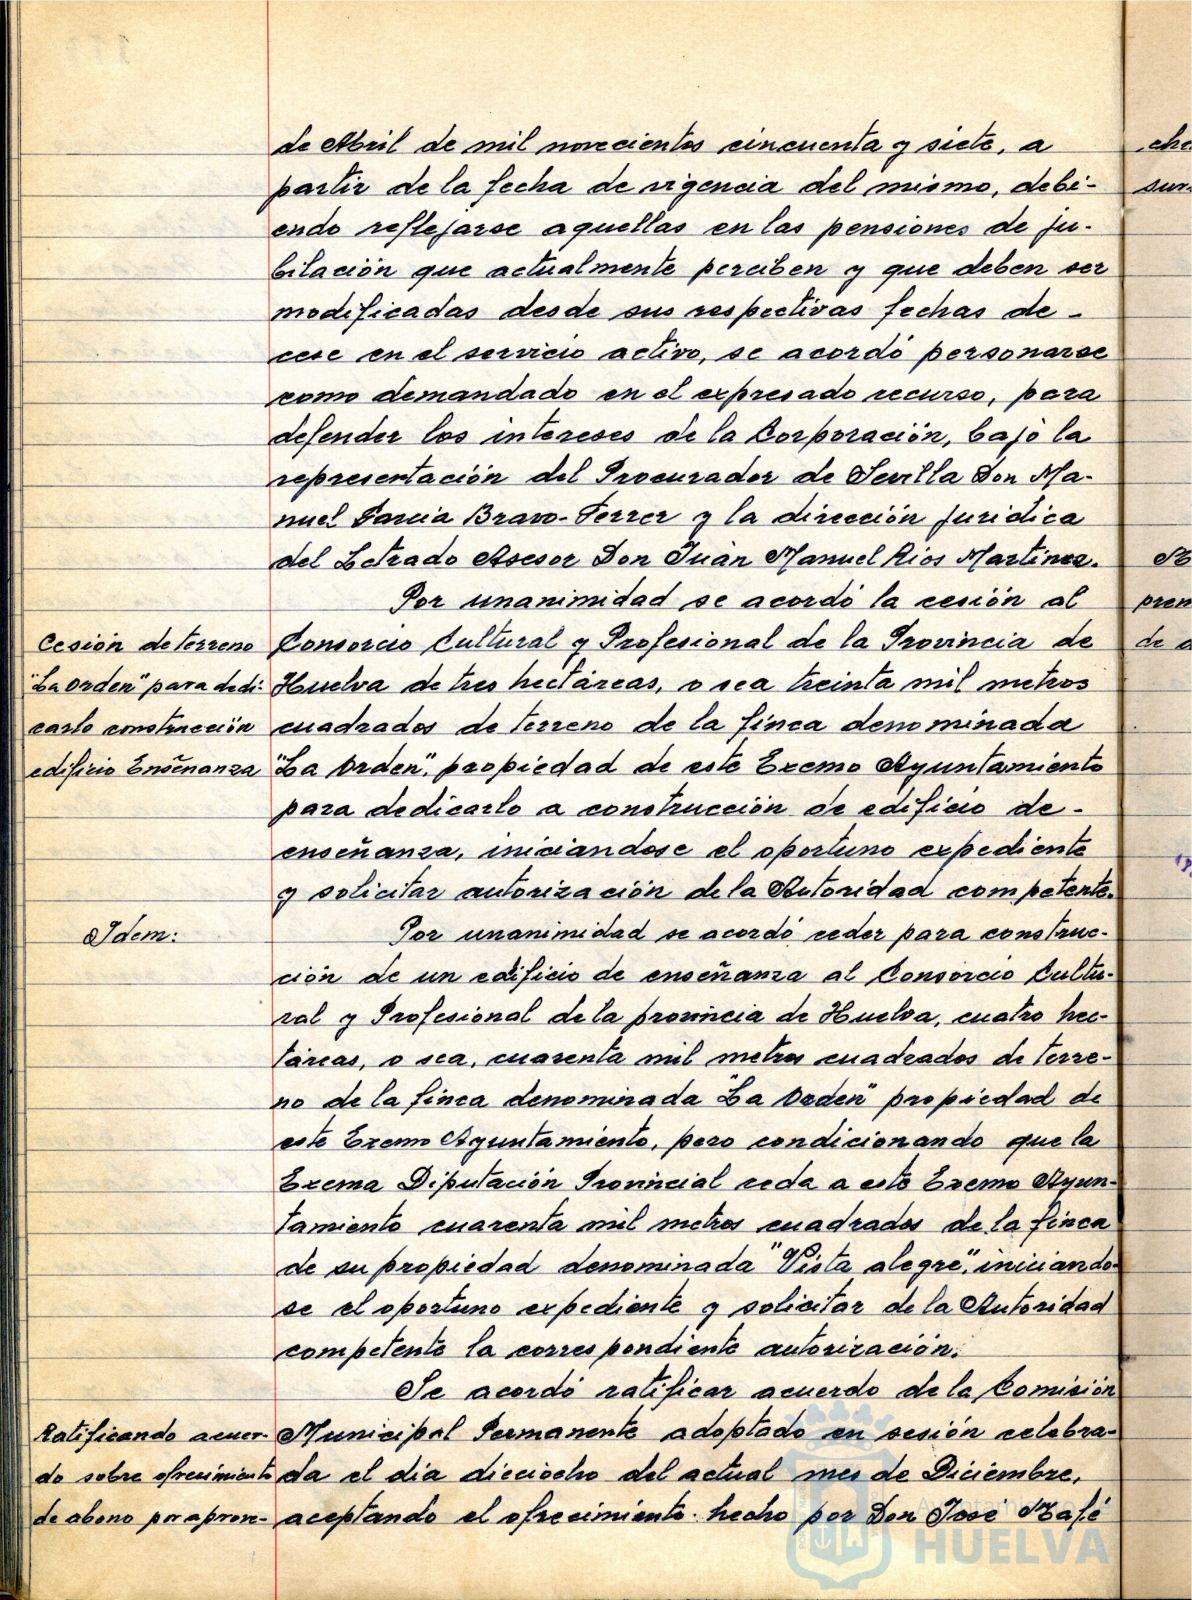 de Abril de mil novecientos cincuenta y siete, a
partir de la fecha de vigencia del mismo, debi-
endo reflejarse aquellas en las pensiones de ju-
bilación que actualmente perciben y que deben ser
modificadas desde sus respectivas fechas de -
cese en el servicio activo, se acordó personarse
como demandado en el expresado recurso, para
defender los intereses de la Corporación, bajo la
representación del Procurador de Sevilla Don Ma-
nuel Garcia Bravo-Ferrer y la dirección juridica
del Letrado Asesor Don Juan Manuel Rios Martinez.
Por unanimidad se acordó la cesión al
Cesión de terreno
"La Orden" para dedi-
carlo construcción
edificio Enseñanza
Consorcio Cultural y Profesional de la Provincia de
Huelva de tres hectáreas, o sea treinta mil metros
cuadrados de terreno de la finca denominada
"La Orden", propiedad de este Excmo Ayuntamiento
para dedicarlo a construcción de edificio de -
enseñanza, iniciandose el oportuno expediente
y solicitar autorización de la Autoridad competente.
Idem:
Por unanimidad se acordó ceder para construc-
ción de un edificio de enseñanza al Consorcio Cultu-
ral y Profesional de la provincia de Huelva, cuatro hec-
táreas, o sea, cuarenta mil metros cuadrados de terre-
no de la finca denominada "La Orden" propiedad de
este Excmo Ayuntamiento, pero condicionando que la
Excma Diputación Provincial ceda a este Excmo Ayun-
tamiento cuarenta mil metros cuadrados de la finca
de su propiedad denominada "Vista alegre", iniciando-
se el oportuno expediente y solicitar de la Autoridad
competente la correspondiente autorización.
Se acordó ratificar acuerdo de la Comisión
Ratificando acuer-
do sobre ofrecimiento
de abono por aprove-
Municipal Permanente adoptado en sesión celebra-
da el dia dieciocho del actual mes de Diciembre,
aceptando el ofrecimiento hecho por Don José Rafé
Ayuntamiento
HUELVA